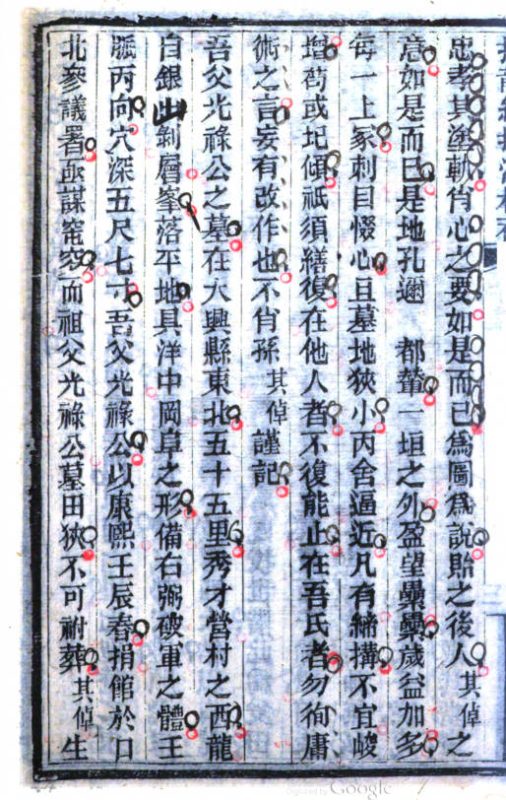 忠孝其塗斬肖心之要如是而已為圖為說貽之後人其倬之
意如是而已是地孔邇 都輦一垣之外盈望纍纍歲益加多
每一上冢刺目惙心且墓地狹小丙舍逼近凡有締搆不宜峻
增苟或圮傾祇須繕復在他人者不復能止在吾氏者勿徇庸
術之言妄有改作也不肖孫其倬謹記
吾父光祿公之墓在大興縣東北五十五里秀才營村之西龍
自銀山剝層峯落平地具洋中岡阜之形備右弼破軍之體壬
龍丙向穴深五尺七寸吾父光祿公以康熙壬辰春捐館於口
北參議署亟謀窀穸而祖父光祿公墓田狹不可祔葬其倬生
Google